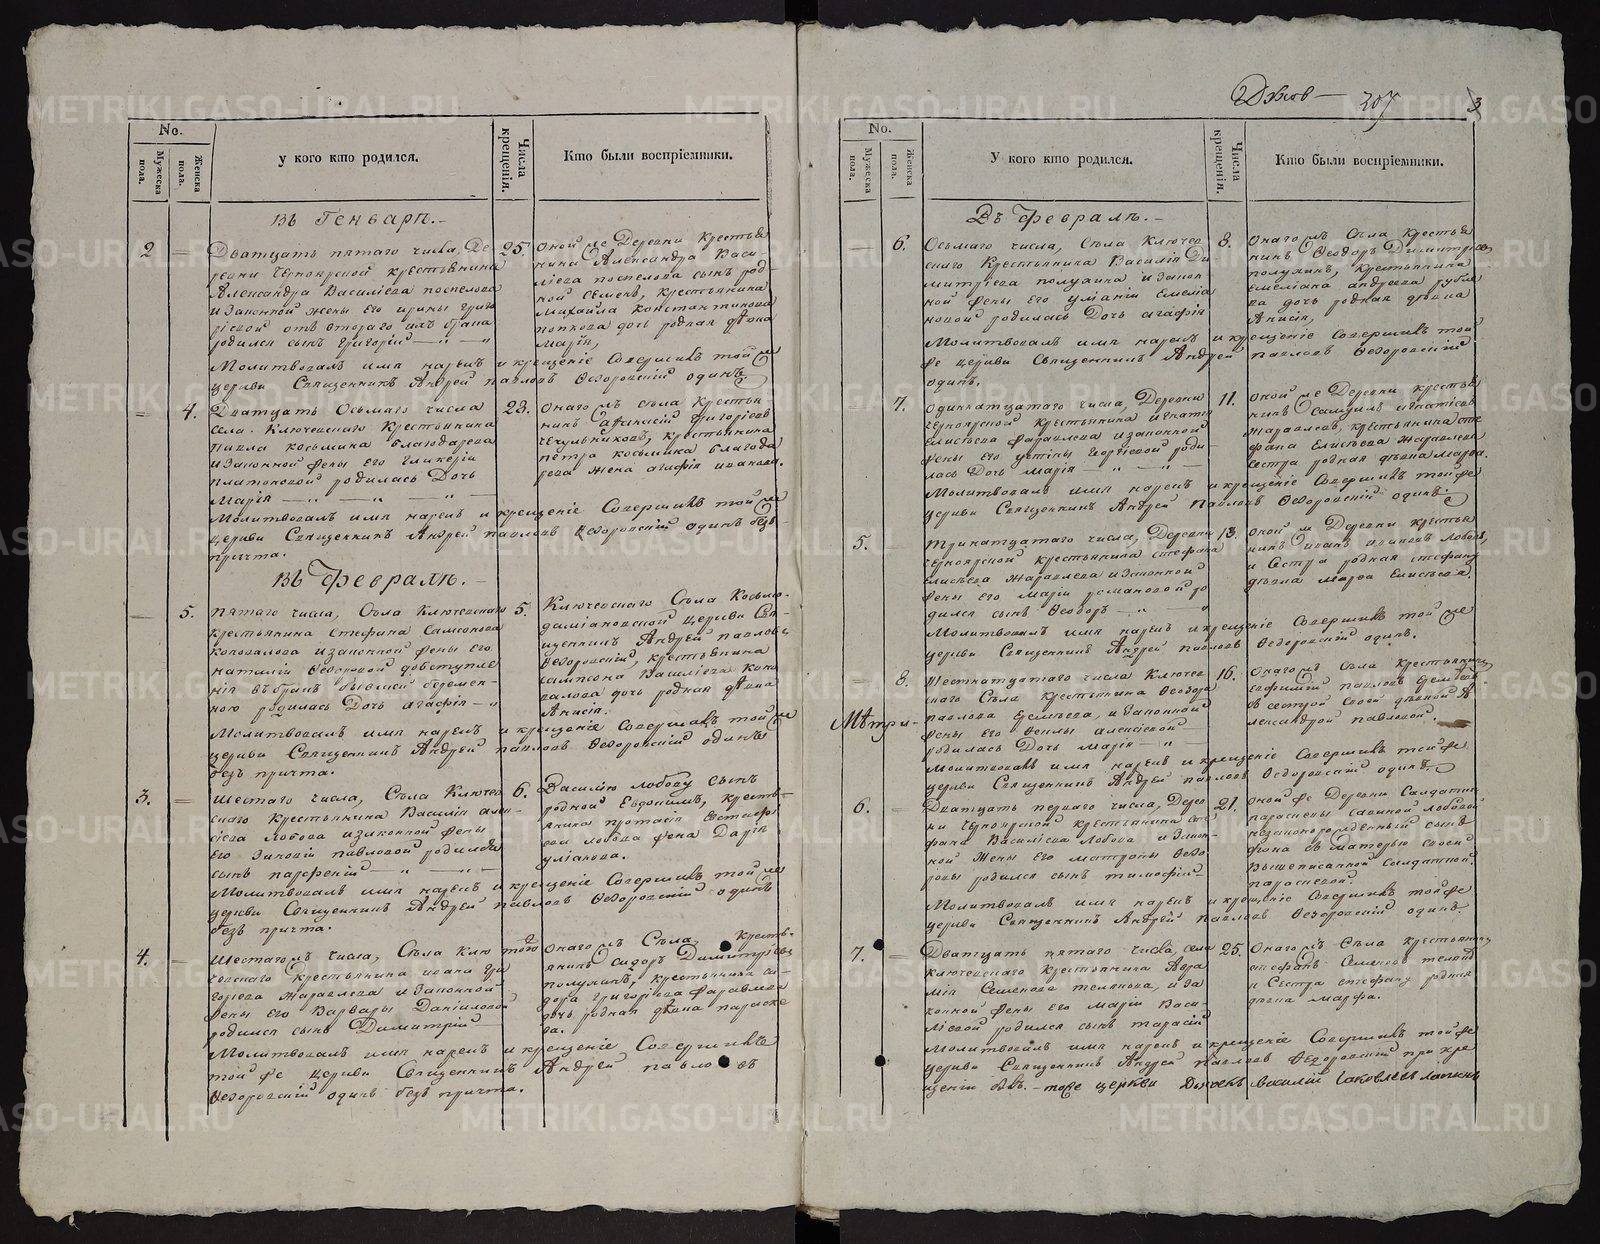 No.
Мужеска пола.
Женска пола.
у кого кто родился.
Числа крещенія.
Кто были воспріемники.
въ Генварѣ.
2 25.
Дватцать пятаго числа, Де-
ревни Черноярской крестьянина
Александра Василіева поспелова
и законной жены его ирины григо-
ріевой отъ втораго ихъ брака
родился сынъ григорій
оной же Деревни крестья-
нина Александра Васи-
ліева поспелова сынъ род-
ной семенъ, крестьянина
Михайла константинова
попкова дочь родная дѣвка
марія,
Молитвовалъ имя нарекъ и крещеніе совершилъ той же
церкви Священникъ Андрей павловъ Ѳедоровскій одинъ
4. 28.
Дватцать Осьмаго числа
села Ключевскаго крестьянина
павла косьмина благодарева
и законной жены его гликеріи
платоновой родилась Дочь
Марія
Онаго жъ села крестья-
нинъ Афанасій григоріевъ
крестьянина
петра косьмина благода-
рева жена агафія иванова.
Молитвовалъ имя нарекъ и крещеніе Совершилъ той же
церкви Священникъ Андрей павловъ Ѳедоровскій одинъ безъ
причта.
въ Февралѣ.
5. 5.
пятаго числа, Села Ключевскаго
крестьянина стефана самсонова
коновалова и законной жены его
наталіи Ѳедоровой до вступле-
нія въ бракъ бывшей беремен-
ною родилась Дочь агафія
Ключевскаго Села Косьмо-
даміановской церкви Свя-
щенникъ Андрей павловъ
Ѳедоровскій, крестьянина
сампсона Василіева коно-
валова дочь родная дѣвка
Анисія.
Молитвовалъ имя нарекъ и крещеніе Совершилъ той же
церкви Священникъ Андрей павловъ Ѳедоровскій одинъ
безъ причта.
3. 6.
шестаго числа, Села Ключев-
скаго крестьянина Василія алек-
сіева лобова и законной жены
его павловой родился
сынъ парфеній
Василію лобову сынъ
родной Евдокимъ, кресть-
янина протасія
лобова жена Дарія
уліанова.
Молитвовалъ имя нарекъ и крещеніе Совершилъ той же
церкви Священникъ Андрей павловъ Ѳедоровскій одинъ
безъ причта.
4.
Шестаго жъ числа, Села Клю-
чевскаго крестьянина ивана гри-
горьева Жаравлева и законной
жены его Варвары Даніиловой
родился сынъ Димитрій
онаго жъ Села кресть-
янинъ сидоръ Димитріевъ
полухинъ, крестьянина си-
дора григоріева Жаравлева
дочь родная дѣвка параске-
ва.
Молитвовалъ имя нарекъ и крещеніе Совершилъ
той же церкви Священникъ Андрей павловъ
Ѳедоровскій одинъ безъ причта.
207 3
No.
Мужеска пола.
Женска пола.
У кого кто родился.
Числа крещенія.
Кто были воспріемники.
Въ Февралѣ.
6. 8.
Осьмаго числа, Села Ключев-
скаго Крестьянина Василія Ди-
митріева полухина и закон-
ной жены его уліаніи емеліа-
новой родилась Дочь агафія
Онаго жъ Села крестья-
нинъ Ѳеодоръ Димитріевъ
полухинъ, крестьянина
емеліана андреева рубле-
ва дочь родная дѣвка
Анисія,
Молитвовалъ имя нарекъ и крещеніе Совершилъ той
же церкви Священникъ Андрей павловъ Ѳедоровскій
одинъ.
7. 11.
Одиннатцатаго числа, Деревни
Черноярской крестьянина игнатія
Елисѣева Жаравлева и законной
жены его устиньи георгіевой роди-
лась Дочь Марія
оной же Деревни крестья-
нинъ Самуилъ игнатіевъ
Жаравлевъ, крестьянина сте-
фана Елисѣева Жаравлева
сестра родная дѣвка Марфа.
Молитвовалъ имя нарекъ и крещеніе Совершилъ той же
церкви Священникъ Андрей Павловъ Ѳедоровскій одинъ.
5. 13.
тринатцатаго числа, Деревни
Черноярской крестьянина стефана
Елисѣева Жаравлева и законной
жены его Маріи романовой ро-
дился сынъ Ѳеодоръ
оной ж Деревни крестья-
нинъ иванъ ивановъ лобовъ,
и Сестра родная стефану
дѣвка марфа Елисѣева.
Молитвовалъ имя нарекъ и крещеніе Совершилъ той же
церкви Священникъ Андрей павловъ Ѳедоровскій одинъ.
8. 16.
Шестнатцатаго числа Ключев-
скаго Села крестьянина Ѳедора
павлова и законной
жены его Ѳеклы алексіевой
родилась Дочь марія
Онаго жъ Села крестьянинъ
павловъ
съ сестрой своей дѣвкой А-
лександрой павловой.
Молитвовалъ имя нарекъ и крещеніе Совершилъ той же
церкви Священникъ Андрей павловъ Ѳедоровскій одинъ.
6. 21.
Дватцать перваго числа, Дерев-
ни Черноярской крестьянина сте-
фана Василіева Лобова и закон-
ной жены его матроны Ѳедо-
ровы родился сынъ тимофій
оной же Деревни Салдатки
параскевы савиной лобовой
незаконорожденный сынъ
съ матерью своей
вышеписанной салдаткой
параскевой.
Молитвовалъ имя нарекъ и крещеніе Совершилъ той же
церкви Священникъ Андрей павловъ Ѳедоровскій одинъ.
7. 25.
Дватцать пятаго числа, села
Ключевскаго крестьянина Авра-
мія Семенова и за-
конной жены его Маріи Васи-
ліевой родился сынъ тарасій
Онаго жъ Села крестьянинъ
стефанъ Семеновъ
и Сестра стефану родная
дѣвка марфа.
Молитвовалъ имя нарекъ и крещеніе Совершилъ той же
церкви Священникъ Андрей павловъ Ѳедоровскій при кре-
щеніи былъ тоже церкви Дьячекъ василій Iаковлевъ
METRIKI.GASO-URAL.RU